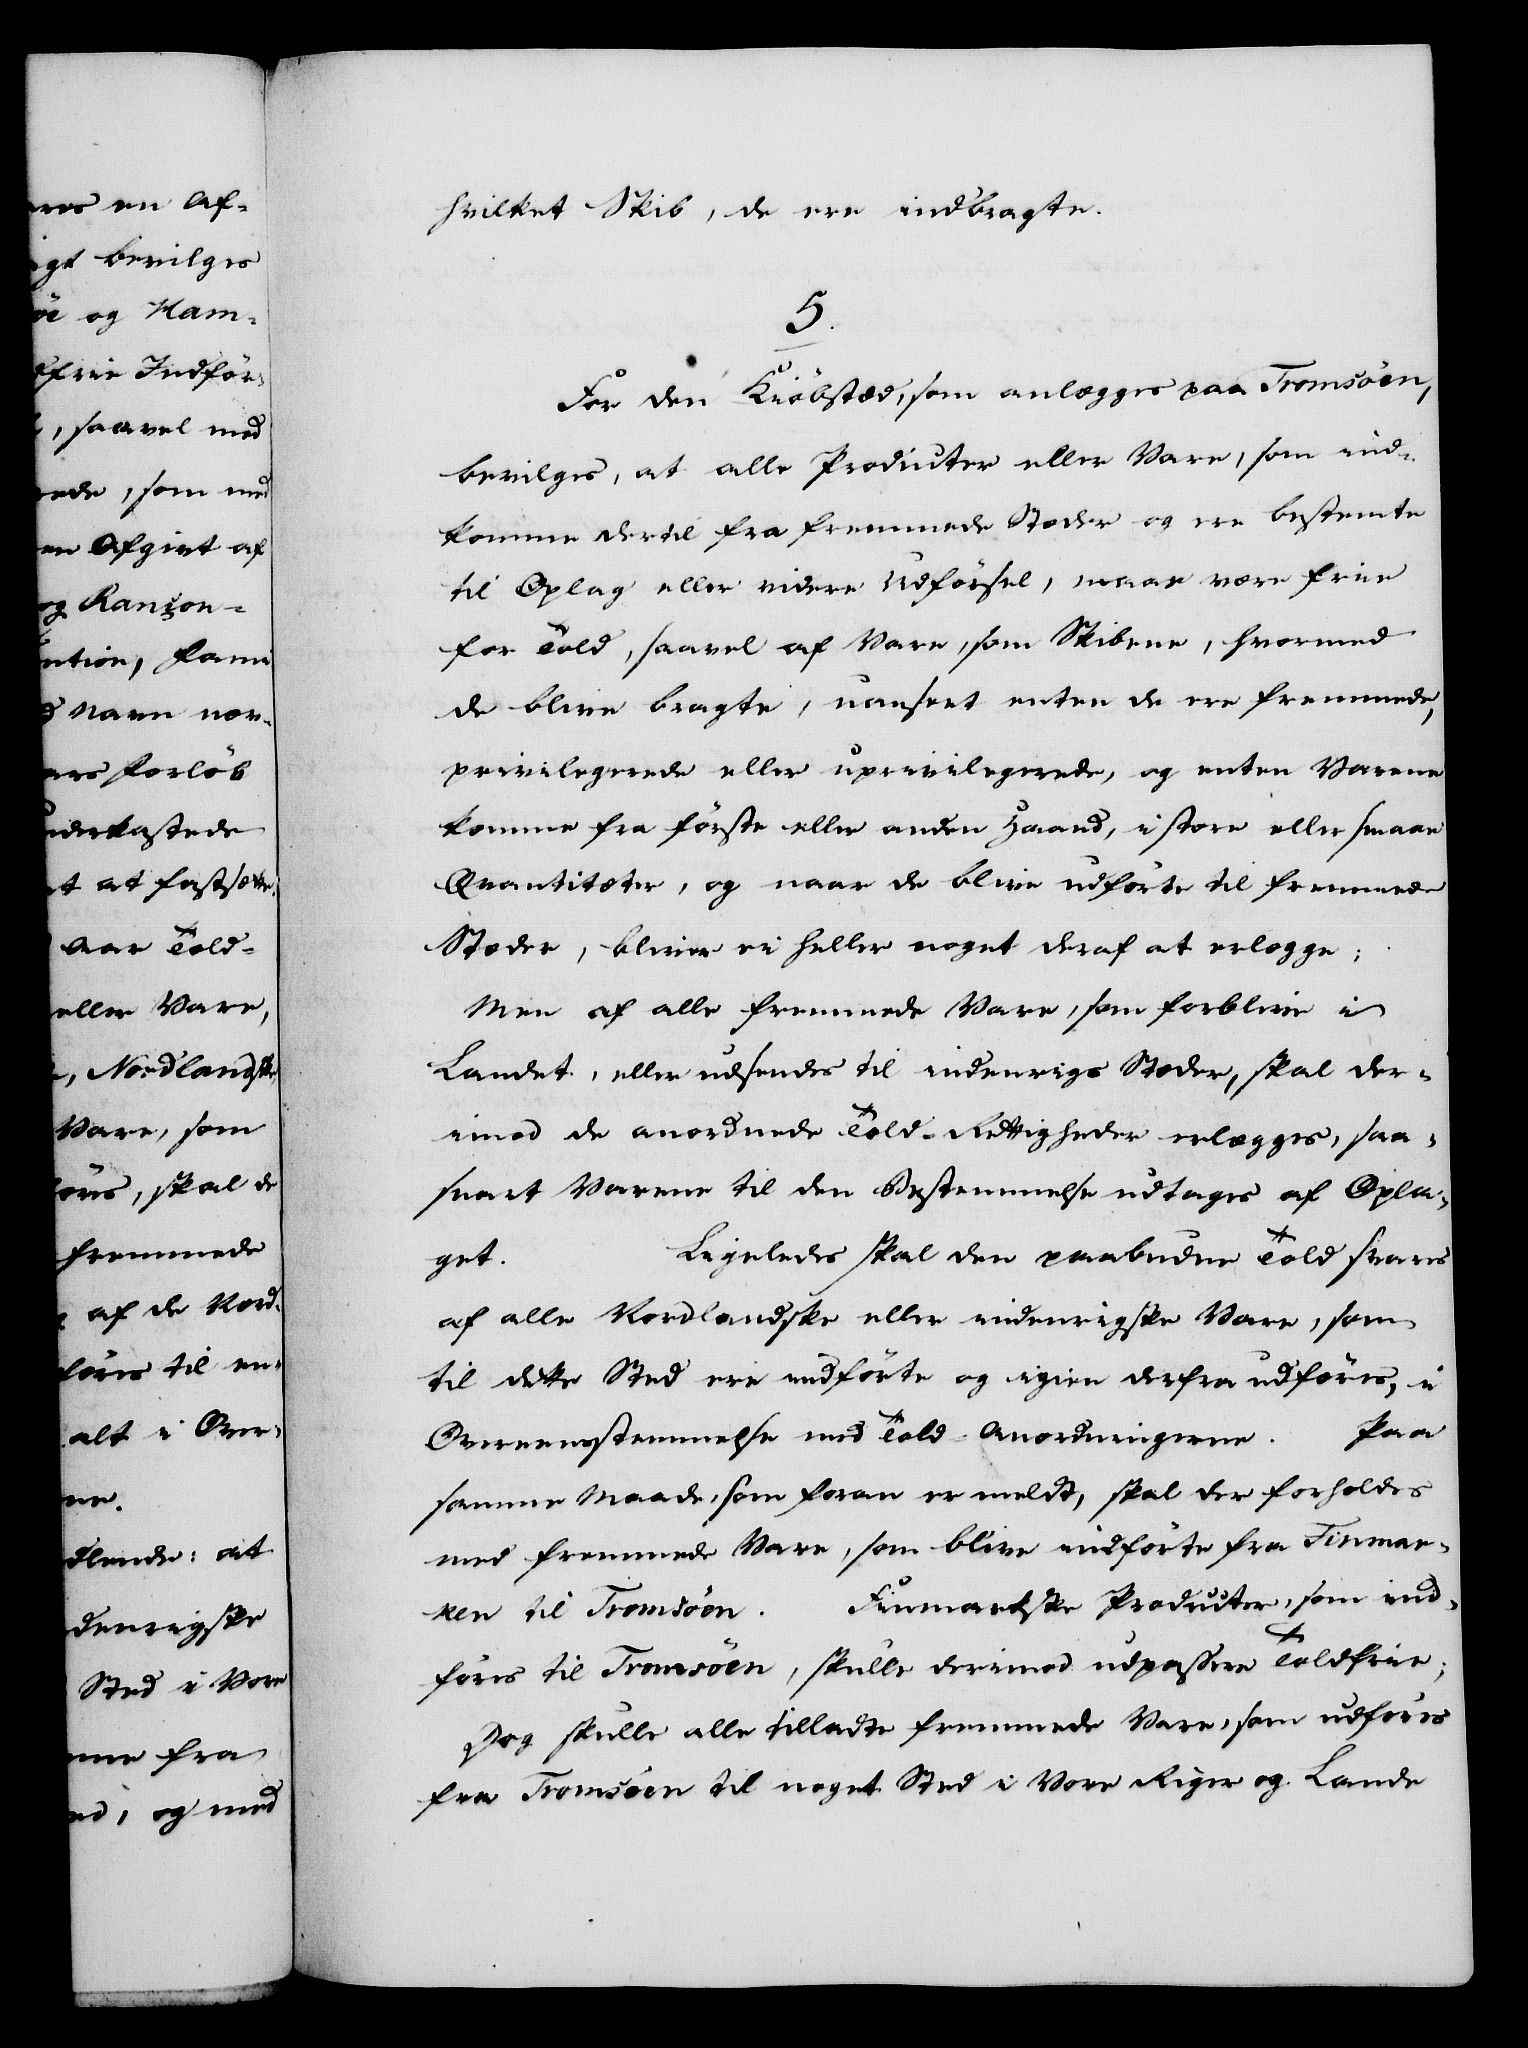 ares en Af-
igt bevilges
öe og Ham-
dfrie Indför-
, saavel med
rede, som med
en Afgivt af
og Ranzon-
ntion, fam
d Navn nær-
ars forlöb
underkastede
t at fastsætte
aar Told-
eller Vare,
, Nordlandske
Vare, som
föres, skal de
fremmede
af de Nord-
föres til en-
alt i Over-
ne.
dlende: at
denrigske
Sted i Vore
me fra
ed, og med
hvilket Skib, de ere indbragte.
5.
For den Kiöbstæd, som anlægges paa Tromsöen,
bevilges, at alle Producter eller Vare, som ind-
komme dertil fra fremmede Stæder og ere bestemte
til Oplag eller videre Udförsel, maae være friee
for Told, saavel af Vare, som Skibene, hvormed
de blive bragte, uanseet enten de ere fremmede,
privilegerede eller uprivilegerede, og enten Varene
komme fra förste eller anden Haand, i store eller smaae
Qvantitæter, og naar de blive udförte til fremmede
Stæder, bliver ei heller noget deraf at erlægge;
Men af alle fremmede Vare, som forblive i
Landet, eller udsendes til indenrigs Stæder, skal der-
imod de anordnede Told-Rettigheder erlægges, saa-
snart Varene til den Bestemmelse udtages af Opla-
get. Ligeledes skal den paabudne Told svares
af alle Nordlandske eller indenrigske Vare, som
til dette Sted ere indförte og igien derfra udföres, i
Overeensstemmelse med Told-Anordningerne. Paa
samme Maade, som foran er meldt, skal der forholdes
med fremmede Vare, som blive indförte fra Finmar-
ken til Tromsöen. Finmarkske Producter, som ind-
föres til Tromsöen, skulle derimod udpassere Toldfrie;
Dog skulle alle tilladte fremmede Vare, som udföres
fra Tromsöen til noget Sted i Vore Riger og Lande